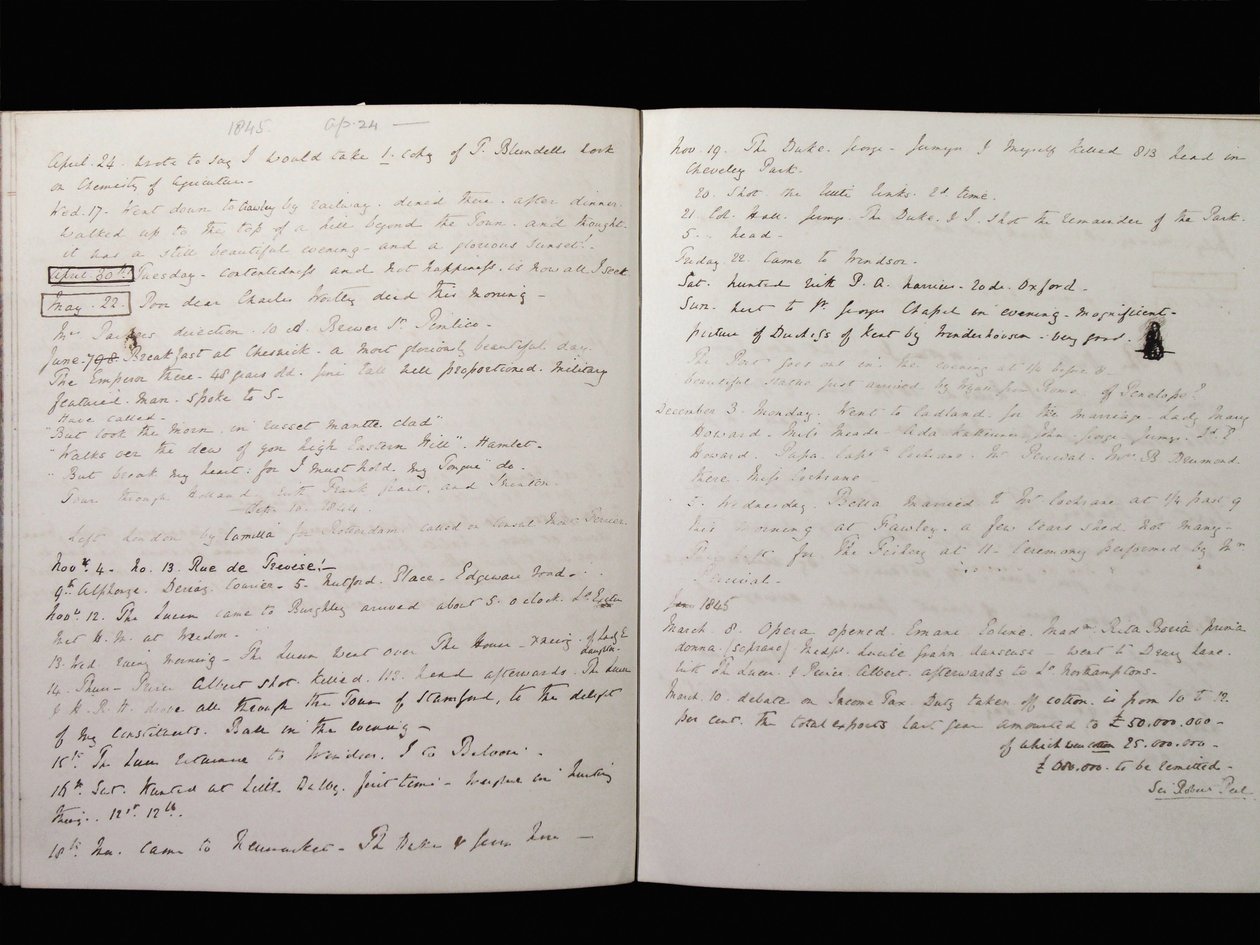 1845. Ap. 24 —
April. 24. wrote to say I would take 1. copy of T. Blundells work
on Chemistry of Agriculture -
Wed. 17. Went down to by railway. dined there. after dinner.
walked up to the top of a hill beyond the Town. and thought
it was a still beautiful evening - and a glorious Sunset. -
April. 30th. Tuesday - contentedness and not happiness. is now all I seek
May. 22. Poor dear Charles Wortley died this morning -
Mrs direction. 10 A. Brewer St. Pimlico -
June. 7 9 8. Breakfast at Cheswick. a most gloriously beautiful day.
The Emperor there. 48 years old. fine tall well proportioned. Military
featured. Man. Spoke to S -
Have called -
"But look the Morn. in russet mantle clad"
"Walks oer the dew of yon high Eastern Hill". Hamlet -
"But break my heart: for I must hold. my Tongue" do.
Tour through Holland with Frank and
1844
Left London by Camilla for Rotterdam. called on Consul
Nov. 4. No. 13. Rue de Trevise. -
9th Alphonse. Courier - 5. Nutford. Place - Edgeware Road -
Novr. 12. The Queen came to Burghley arrived about 5. o clock. Ld Exeter
met H. M. at Weedon.
13. Wed. rainy morning - The Queen went over The House - of Lady E
daughter.
14. Thurs - Prince Albert shot. killed. 112. head afterwards. The Queen
& H. R. H. drove all through the Town of Stamford, to the delight
of my constituents. Ball in the evening -
15th. The Queen returned to Windsor. I to Belvoir -
16th. Sat. Hunted at Little Dalby. first time - weighed in hunting
things. 12st. 12lb.
18th. Mon. came to Newmarket - The Duke & here -
Nov. 19. The Duke. George - Jermyn & Myself killed 813 head in
Cheveley Park.
20. Shot the Links. 2d time.
21. Col. Hall. Jermyn. The Duke. & I. Shot the remainder of the Park.
5 . . head -
Friday. 22. Came to Windsor.
Sat. hunted with P. A. harriers - rode. Oxford -
Sun. went to St. Georges Chapel in evening - Magnificent -
picture of Duchess of Kent by Winderhausen - very good.
The Post goes out in the evening at 1/4 before 8 -
beautiful statue just arrived by Wyatt from Rome. of Penelope?
December 3. Monday. Went to Cadland. for the marriage. Lady Mary
Howard - Miss Meade. Ada John. George. Jermyn. Ld E
Howard. Papa. Captn Cochrane. Mr Percival. Mrs B. Drummond.
there. Miss Cochrane -
5. Wednesday. Bella Married to Mr. Cochrane at 1/4 past 9
this morning at Fawley. a few tears shed. not many -
They left for The Fishery at 11 - Ceremony performed by Mr
Percival -
1845
March. 8. Opera opened. Ernani Eoline. Madm. Rita Borio. prima
donna (soprano) Madlle Lucile Grahn danseuse - went to Drury Lane.
with The Queen & Prince Albert. afterwards to Ld Northamptons -
March. 10. debate on Income Tax. Duty taken off cotton. is from 10 to 12
per cent. The total exports last year amounted to £50.000.000 -
of which was cotton 25.000.000 -
£680.000. to be remitted -
Sir Robert Peel